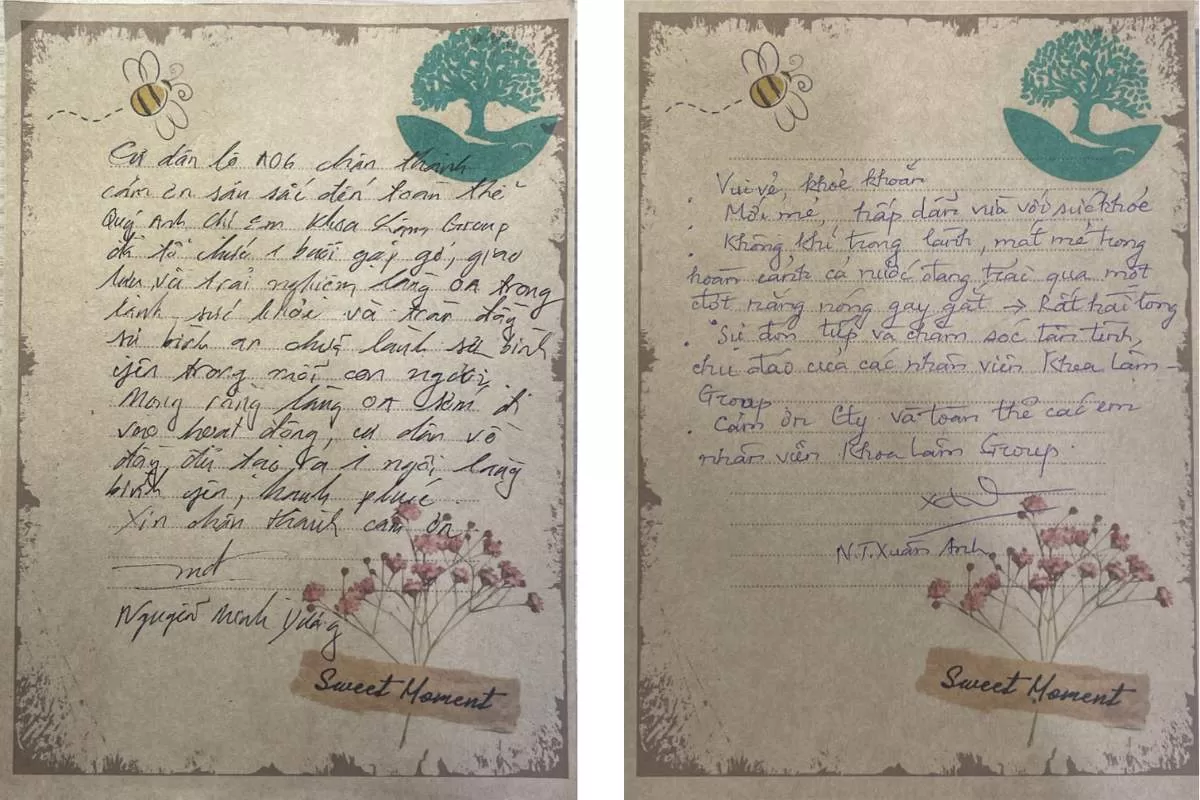 Cư dân lô A06 chân thành
cảm ơn sâu sắc đến toàn thể
Quý Anh Chị Em Khoa Lâm Group
đã tổ chức 1 buổi gặp gỡ, giao
lưu và trải nghiệm làng OA trong
lành sức khỏe và tràn đầy
sự bình an chữa lành sự bình
yên trong mỗi con người.
Mong rằng làng OA sớm đi
vào hoạt động, cư dân về
đây để tạo ra 1 ngôi làng
bình yên, hạnh phúc
Xin chân thành cảm ơn.
Nguyễn Minh
Sweet Moment
Vui vẻ, khoẻ khoắn
• Mới mẻ, hấp dẫn vừa với sức khoẻ
• Không khí trong lành, mát mẻ trong
hoàn cảnh cả nước đang trải qua một
đợt nắng nóng gay gắt → Rất hài lòng
• Sự đón tiếp và chăm sóc tận tình,
chu đáo của các nhân viên Khoa Lâm –
Group
• Cảm ơn Cty và toàn thể các em
nhân viên Khoa Lâm Group.
N.T.Xuân Anh
Sweet Moment